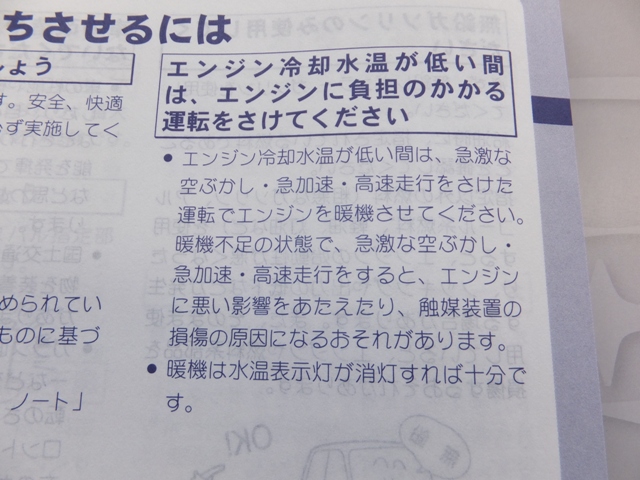 ちさせるには
しょう
す。安全、快適
必ず実施してく
められてい
ものに基づ
ノート」
エンジン冷却水温が低い間
は、エンジンに負担のかかる
運転をさけてください
● エンジン冷却水温が低い間は、急激な
空ぶかし・急加速・高速走行をさけた
運転でエンジンを暖機させてください。
暖機不足の状態で、急激な空ぶかし・
急加速・高速走行をすると、エンジン
に悪い影響をあたえたり、触媒装置の
損傷の原因になるおそれがあります。
● 暖機は水温表示灯が消灯すれば十分で
す。